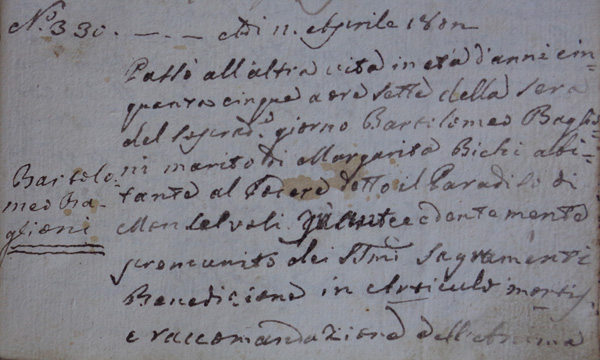 N.° 330. — . — Adi 11. Aprile 1802
Passò all'altra vita in età d'anni cin=
quanta cinque a ore sette della sera
del sosprad.° giorno Bartolomeo Baglio=
ni marito di Margarita Bichi abi=
tante al Podere detto il Paradiso di
Mon Selvoli antecedentemente
premunito dei SSmi Sagramenti
Benedizione in Articulo mortis
e raccomandazione dell'Anima
Bartolo=
meo Ba=
glioni